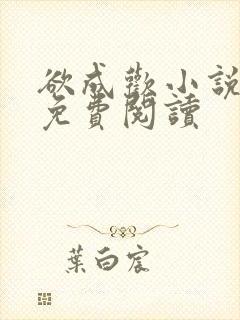 欲成歡小說
免費閱讀
葉白宸